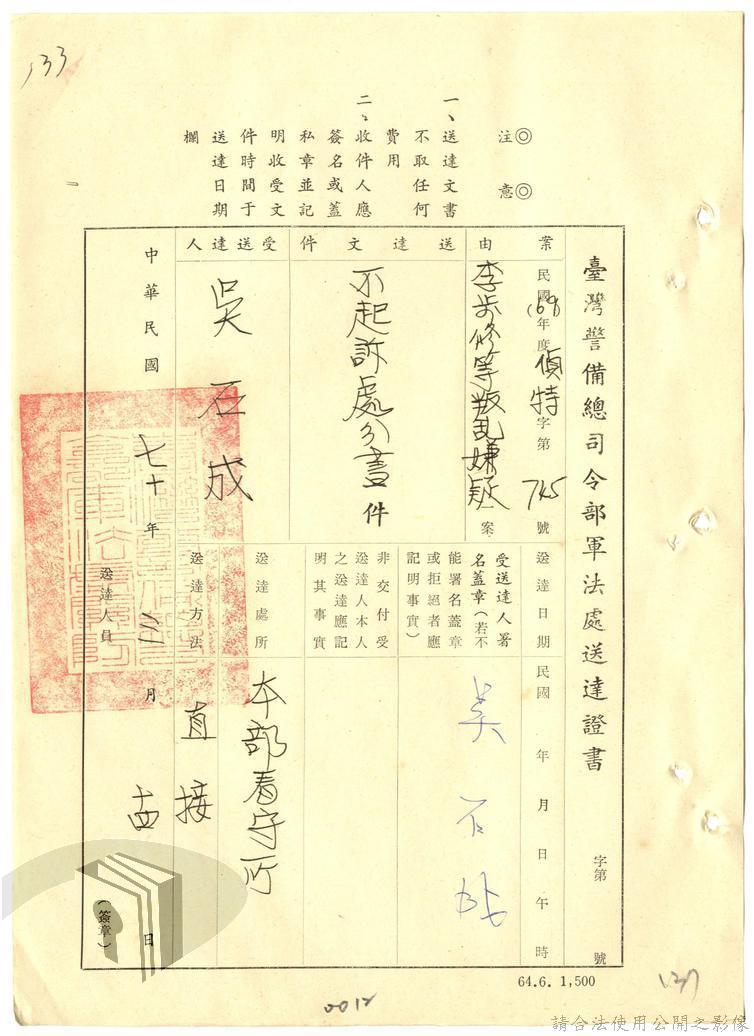 133
注意
一、送達文書
不取任何
費用
二、收件人應
簽名或蓋
私章並記
明收受文
件時間于
送達日期
欄
臺灣警備總司令部軍法處送達證書
字第 號
案由
民國(69)年度偵特字第 745 號
李步修等叛乱嫌疑案
送達文件
不起訴處分書件
受送達人
吳石成
送達日期
民國 年 月 日 午 時
受送達人署
名蓋章(若不
能署名蓋章
或拒絕者應
記明事實)
吳石成
非交付受
送達人本人
之送達應記
明其事實
送達處所
本部看守所
送達方法
直接
中華民國七十年三月十四日
送達人員
(簽章)
64.6. 1,500
137
0012
請合法使用公開之影像